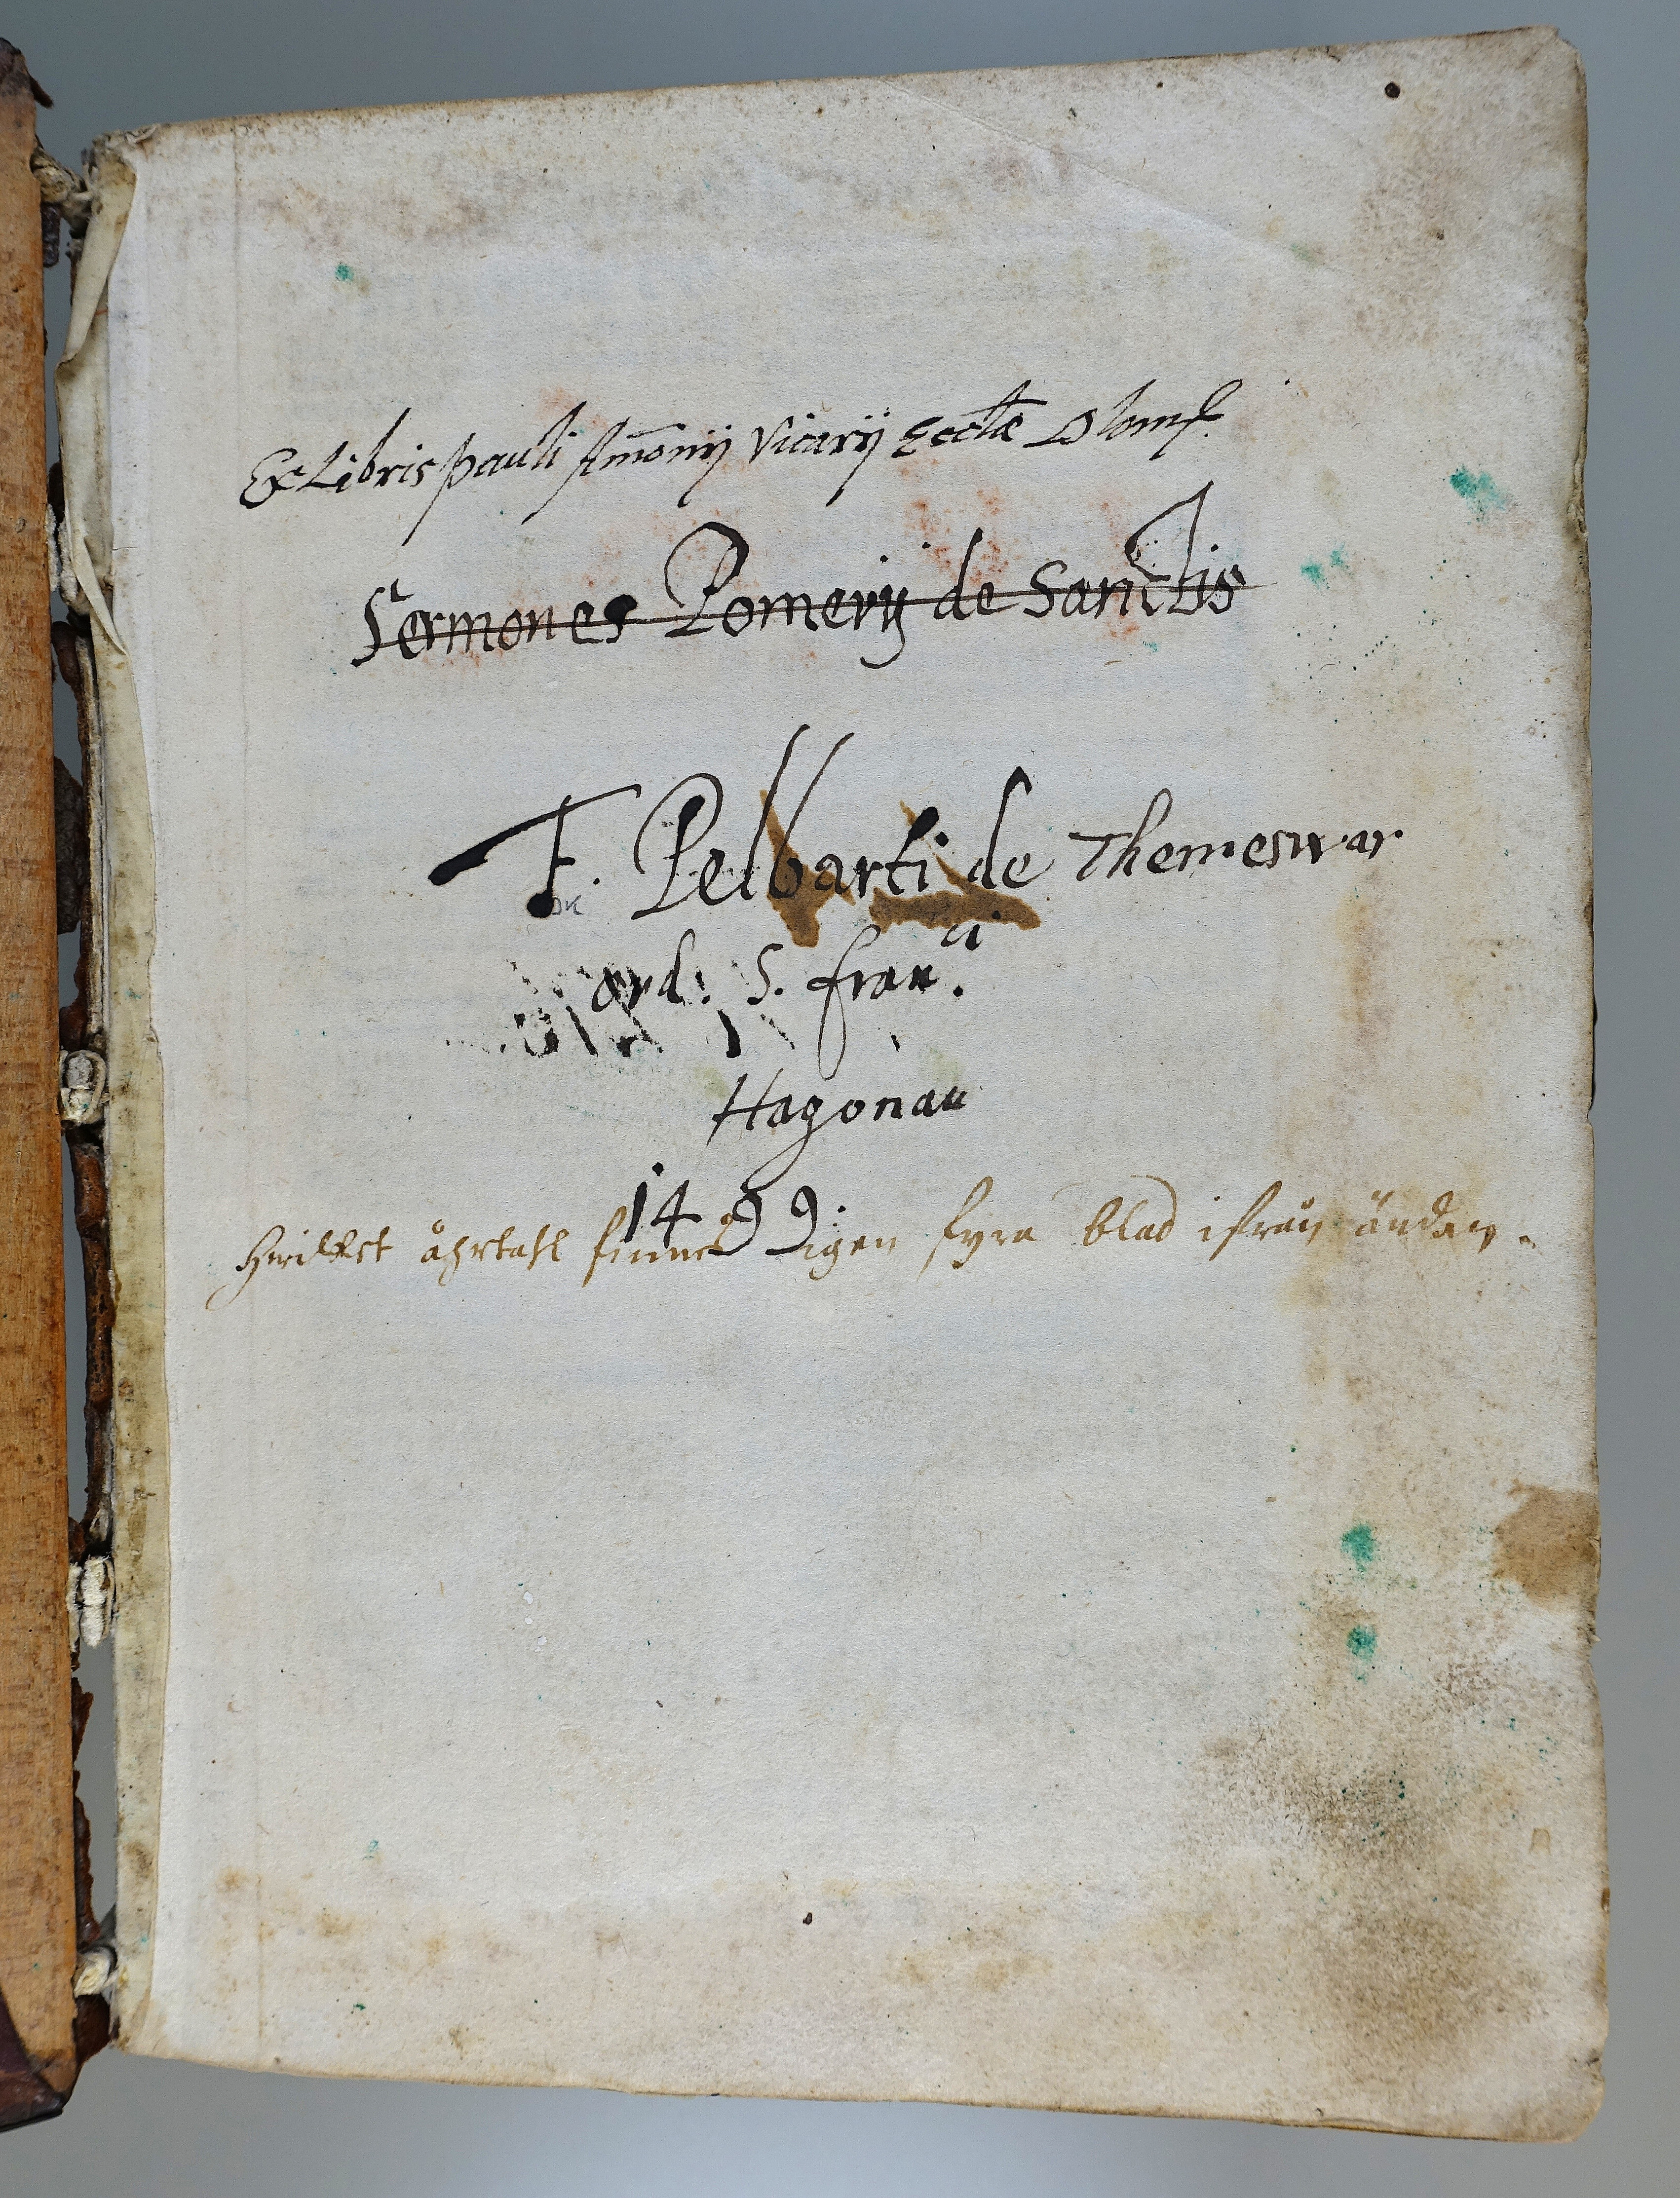 Ex Libris pauli Am̄onij Vicarij Ecctæ Olom̃.
Sermones Pomerij de Sanctis
F. Pelbarti de Themeswar
ord: S. fran.ci
Hagonau
1499.
Hwilket åhrtahl finnes igen fyra blad ifrån ändan.